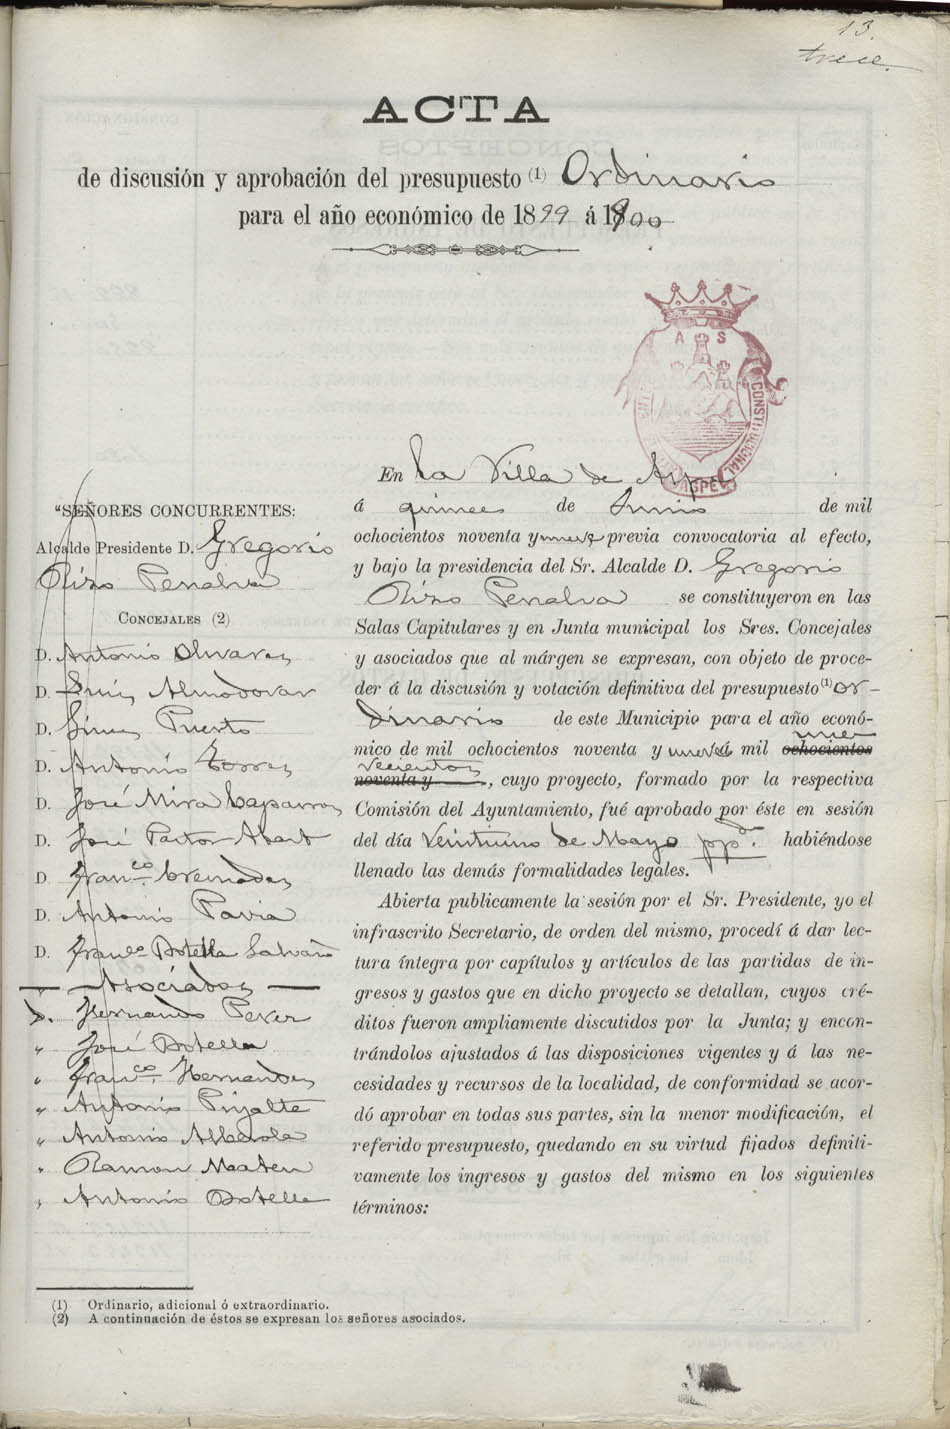 13.
trece.
ACTA
de discusión y aprobación del presupuesto (1) Ordinario
para el año económico de 1899 á 1900
A S
CONSTITUCIONAL
ASPE
En la Villa de Aspe
á quince de Junio de mil
ochocientos noventa y nueve previa convocatoria al efecto,
y bajo la presidencia del Sr. Alcalde D. Gregorio
Penalva se constituyeron en las
Salas Capitulares y en Junta municipal los Sres. Concejales
y asociados que al márgen se expresan, con objeto de proce-
der á la discusión y votación definitiva del presupuesto (1) Or-
dinario de este Municipio para el año econó-
mico de mil ochocientos noventa y nueve á mil ochocientos
noventa y , cuyo proyecto, formado por la respectiva
Comisión del Ayuntamiento, fué aprobado por éste en sesión
del día Veintiuno de Mayo ppdo. habiéndose
llenado las demás formalidades legales.
Abierta publicamente la sesión por el Sr. Presidente, yo el
infrascrito Secretario, de orden del mismo, procedí á dar lec-
tura íntegra por capítulos y artículos de las partidas de in-
gresos y gastos que en dicho proyecto se detallan, cuyos cré-
ditos fueron ampliamente discutidos por la Junta; y encon-
trándolos ajustados á las disposiciones vigentes y á las ne-
cesidades y recursos de la localidad, de conformidad se acor-
dó aprobar en todas sus partes, sin la menor modificación, el
referido presupuesto, quedando en su virtud fijados definiti-
vamente los ingresos y gastos del mismo en los siguientes
términos:
SEÑORES CONCURRENTES:
Alcalde Presidente D. Gregorio
Penalva
CONCEJALES (2)
D. Antonio Olivares
D. Luis Almodovar
D. Puerto
D. Antonio Torres
D. José Mira Caparros
D. José Pastor Abart
D. Franco. Cremades
D. Antonio Pavia
D. Franco. Botella
Asociados
D. Hernando
" José Botella
" Franco. Hernandez
" Antonio Pujalte
" Antonio
" Ramon
" Antonio Botella
(1) Ordinario, adicional ó extraordinario.
(2) A continuación de éstos se expresan los señores asociados.